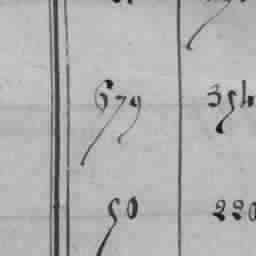 679 354
50 220